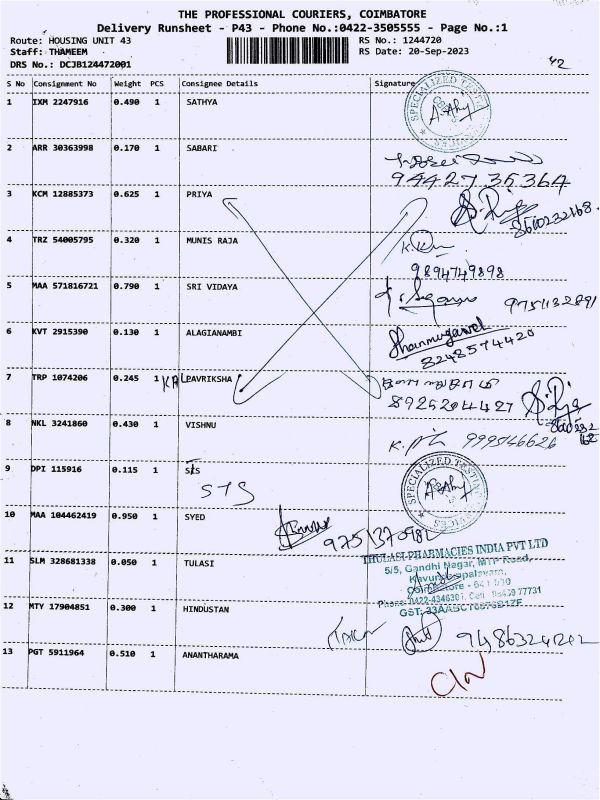 THE PROFESSIONAL COURIERS, COIMBATORE
Delivery Runsheet - P43 - Phone No.:0422-3505555 - Page No.:1
Route: HOUSING UNIT 43 RS No.: 1244720
Staff: THAMEEM RS Date: 20-Sep-2023
DRS No.: DCJB124472001
S No Consignment No Weight PCS Consignee Details Signature
1 IXM 2247916 0.490 1 SATHYA
SPECIALIZED TESTING
2 ARR 30363998 0.170 1 SABARI
9442735364
3 KCM 12885373 0.625 1 PRIYA
8600232168
4 TRZ 54005795 0.320 1 MUNIS RAJA
9894749898
5 MAA 571816721 0.790 1 SRI VIDAYA
9751132891
6 KVT 2915390 0.130 1 ALAGIANAMBI
Shanmugavel
8248574420
7 TRP 1074206 0.245 1 KALPAVRIKSHA
8925204427
8 NKL 3241860 0.430 1 VISHNU
9 DPI 115916 0.115 1 SIS
STS
SPECIALIZED TESTING
10 MAA 104462419 0.950 1 SYED
11 SLM 328681338 0.050 1 TULASI
THULASI PHARMACIES INDIA PVT LTD
5/5, Gandhi Nagar, MTP Road,
12 MTY 17904851 0.300 1 HINDUSTAN
9486324212
13 PGT 5911964 0.510 1 ANANTHARAMA